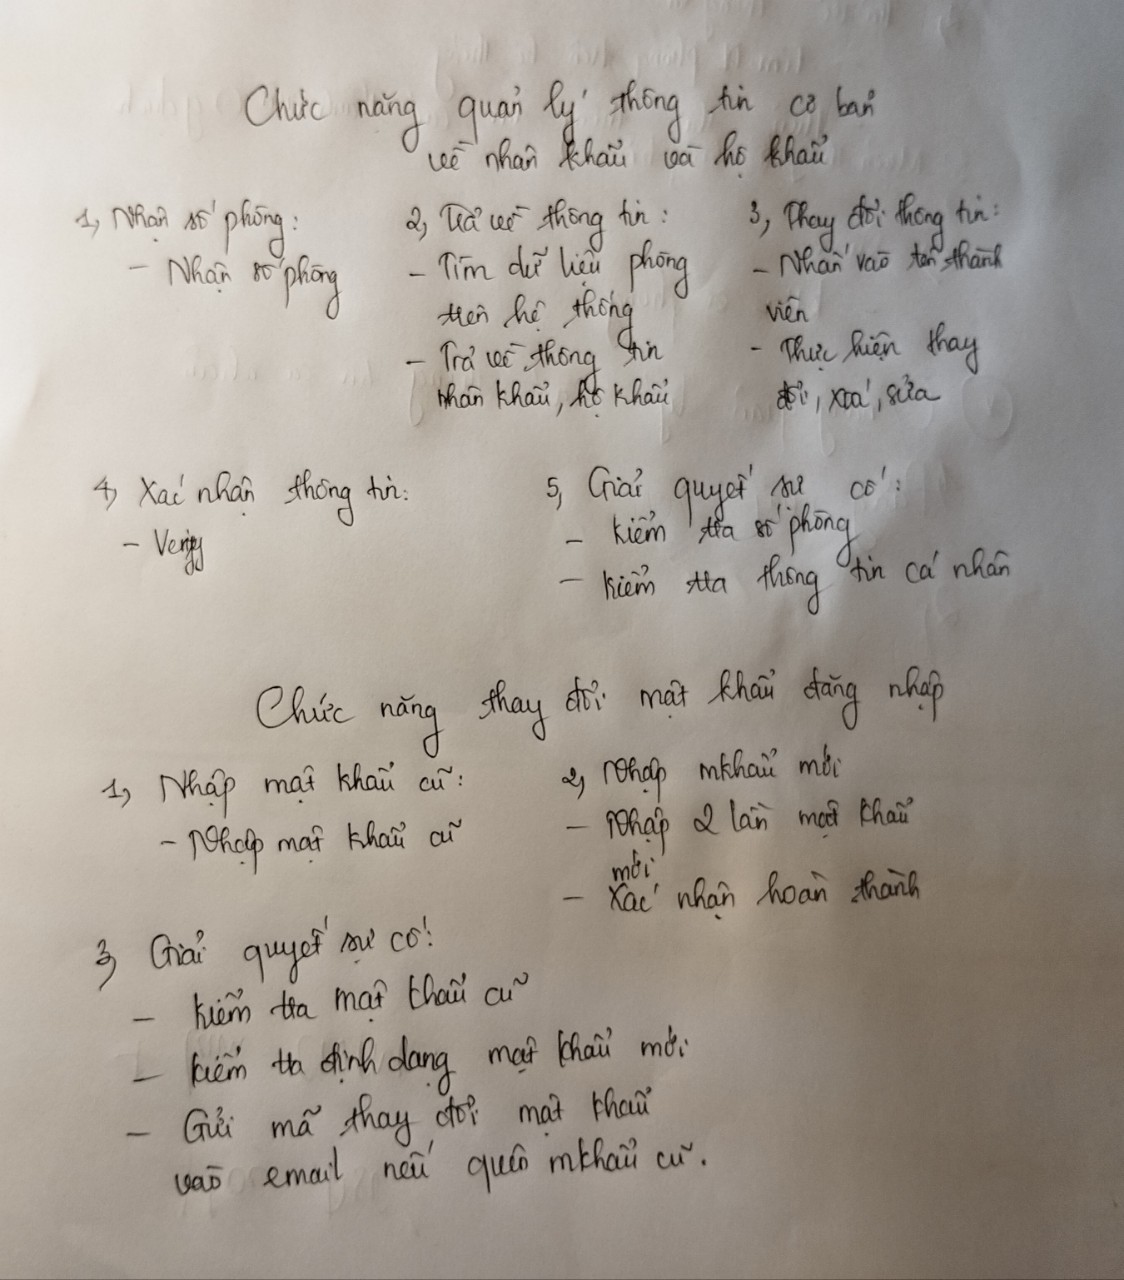 Chức năng quản lý thông tin cơ bản
về nhân khẩu và hộ khẩu
1, Nhận số phòng:
- Nhận số phòng
2, Trả về thông tin:
- Tìm dữ liệu phòng
trên hệ thống
- Trả về thông tin
nhân khẩu, hộ khẩu
3, Thay đổi thông tin:
- Nhấn vào tên thành
viên
- Thực hiện thay
đổi, xoá, sửa
4, Xác nhận thông tin:
- Verify
5, Giải quyết sự cố:
- Kiểm tra số phòng
- Kiểm tra thông tin cá nhân
Chức năng thay đổi mật khẩu đăng nhập
1, Nhập mật khẩu cũ:
- Nhập mật khẩu cũ
2, Nhập mkhẩu mới
- Nhập 2 lần mật khẩu
mới
- Xác nhận hoàn thành
3, Giải quyết sự cố:
- Kiểm tra mật khẩu cũ
- Kiểm tra định dạng mật khẩu mới
- Gửi mã thay đổi mật khẩu
vào email nếu quên mkhẩu cũ.